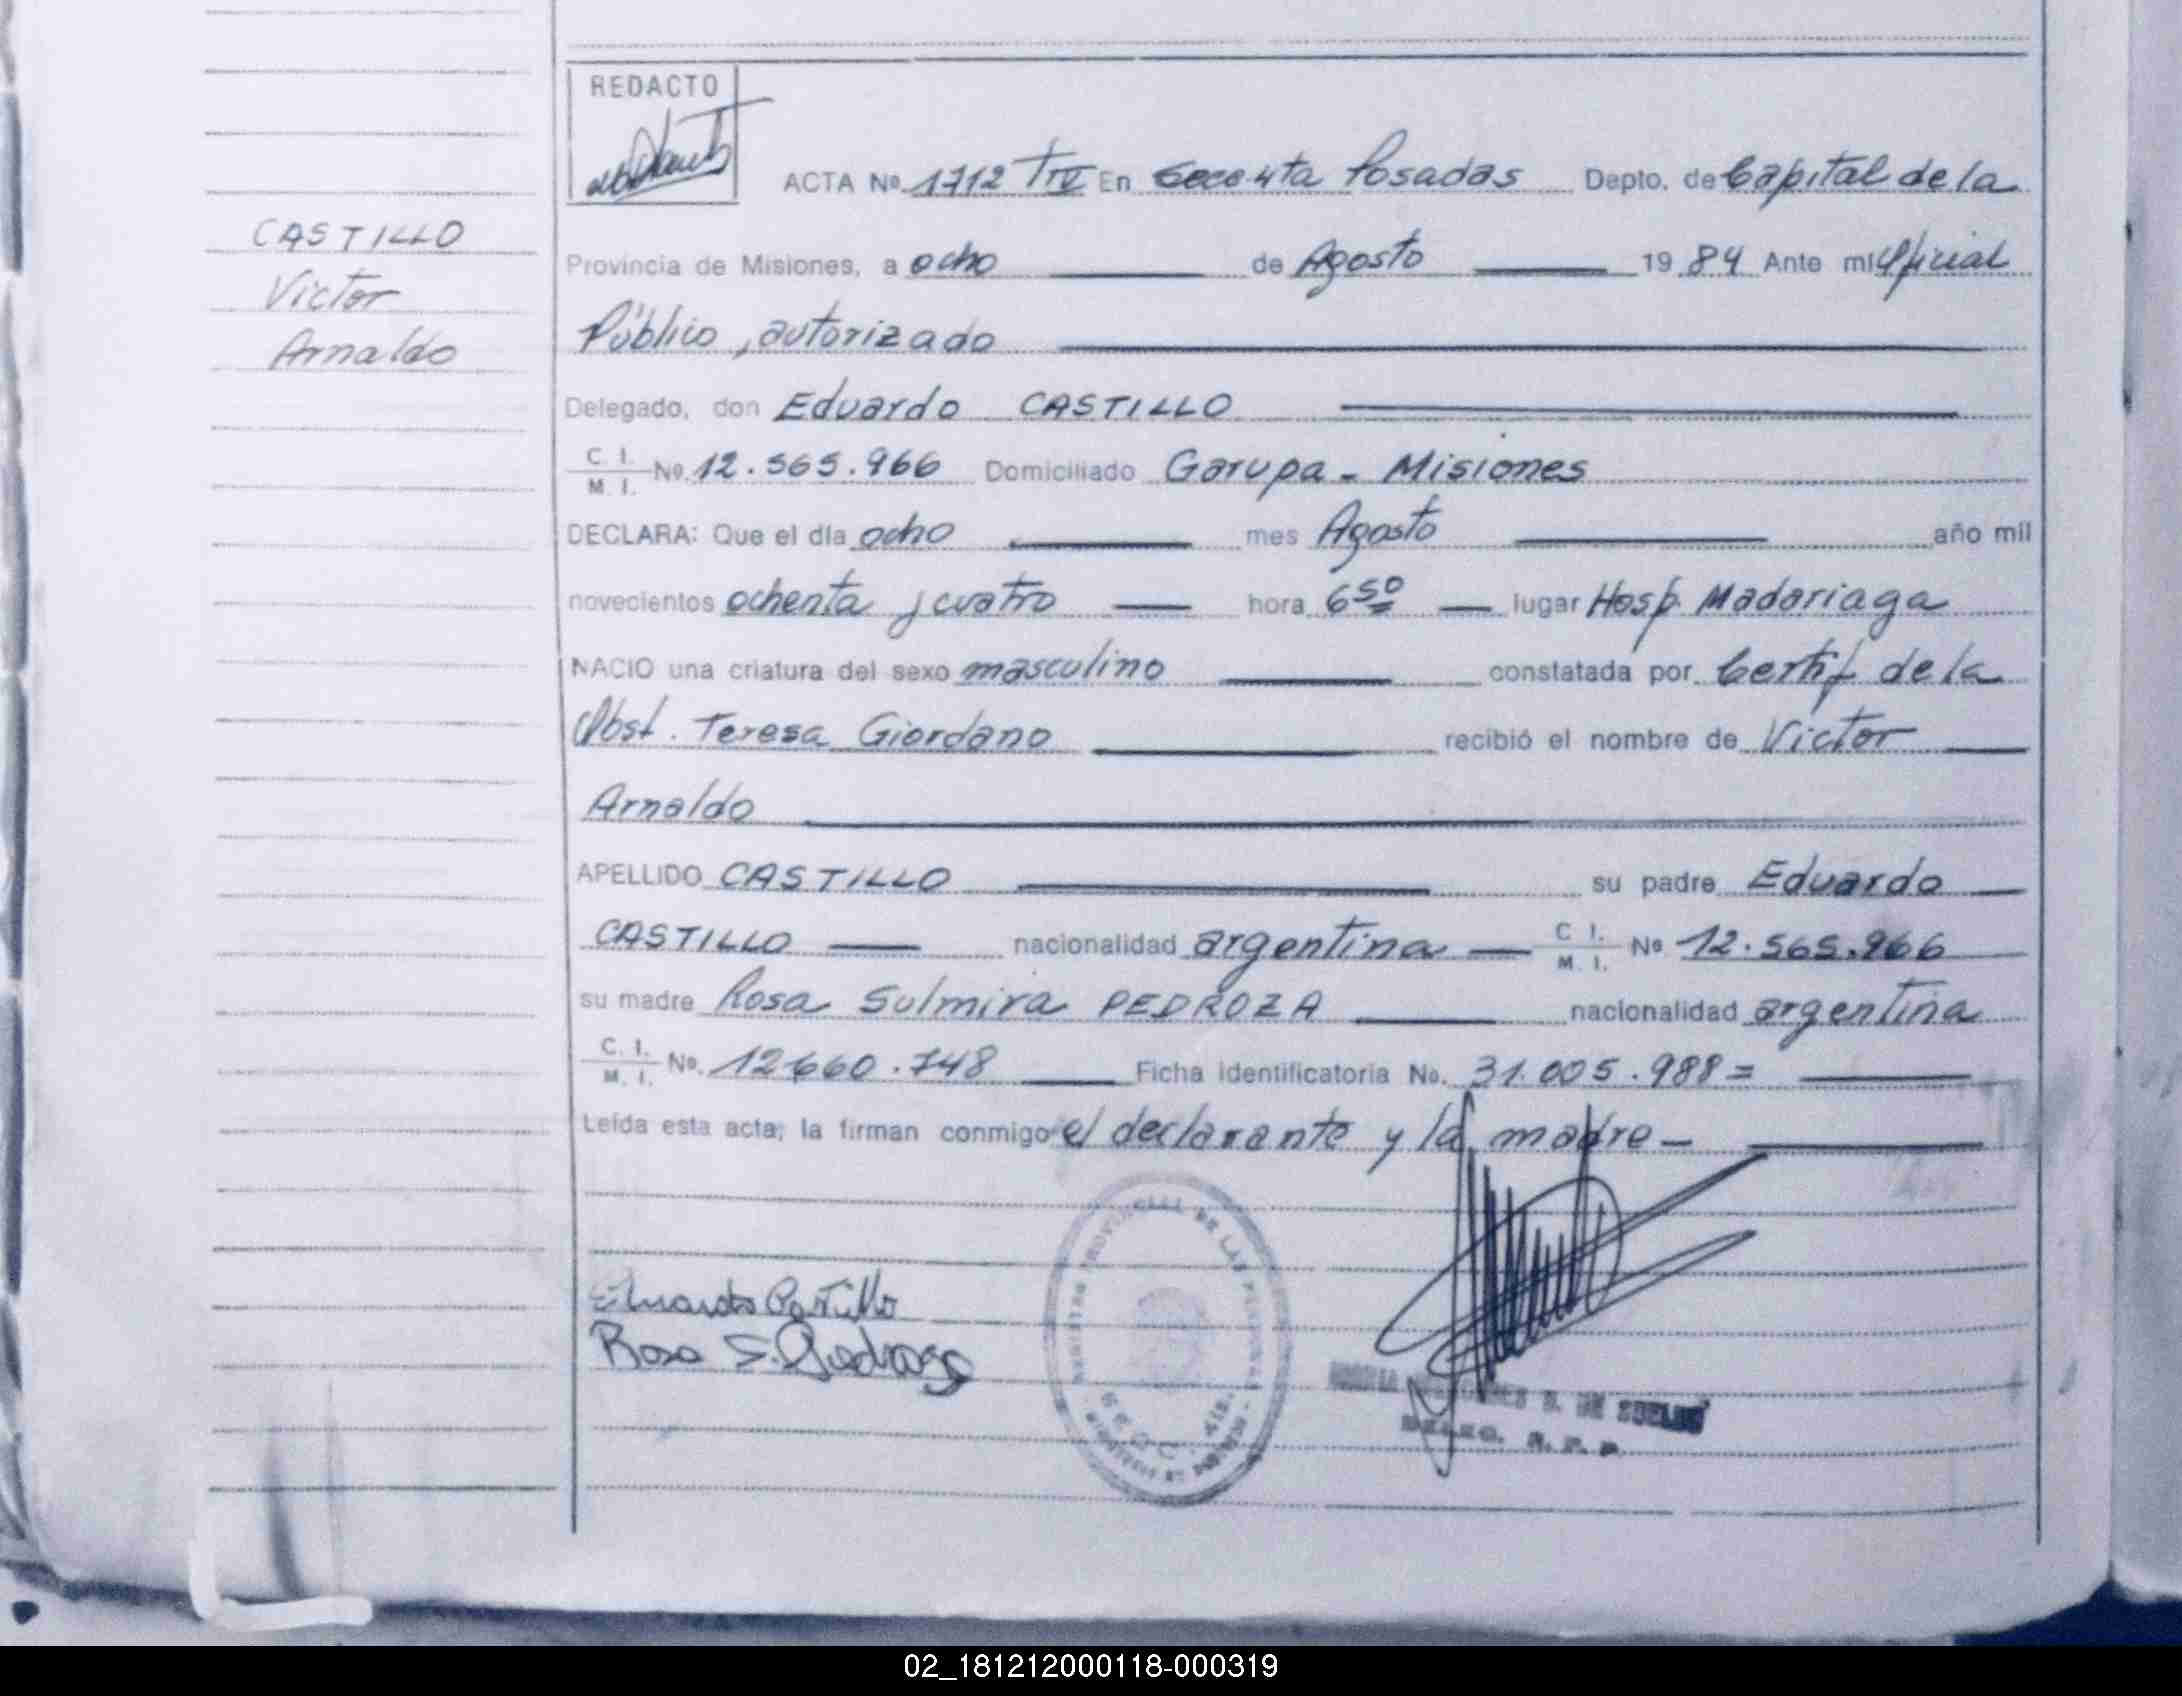 REDACTO
ACTA Nº 1712 TIV En Secc. 4ta Posadas Depto. de Capital de la
CASTILLO
Victor
Arnaldo
Provincia de Misiones, a ocho de Agosto 19 84 Ante mi Oficial
Público, autorizado
Delegado, don Eduardo CASTILLO
C. I. M. I. No. 12.565.966 Domiciliado Garupa - Misiones
DECLARA: Que el día ocho mes Agosto año mil
novecientos ochenta y cuatro hora 6 50 lugar Hosp. Madariaga
NACIO una criatura del sexo masculino constatada por Certif de la
Obst. Teresa Giordano recibió el nombre de Victor
Arnaldo
APELLIDO CASTILLO su padre Eduardo
CASTILLO nacionalidad argentina C. I. M. I. Nº 12.565.966
su madre Rosa Sulmira PEDROZA nacionalidad argentina
C. I. M. I. No. 12660.748 Ficha identificatoria No. 31.005.988=
Leída esta acta, la firman conmigo el declarante y la madre -
Eduardo Castillo
Rosa S. Pedroza
REGISTRO PROVINCIAL DE LAS PERSONAS
DE SUELDO
R. P. P.
02_181212000118-000319